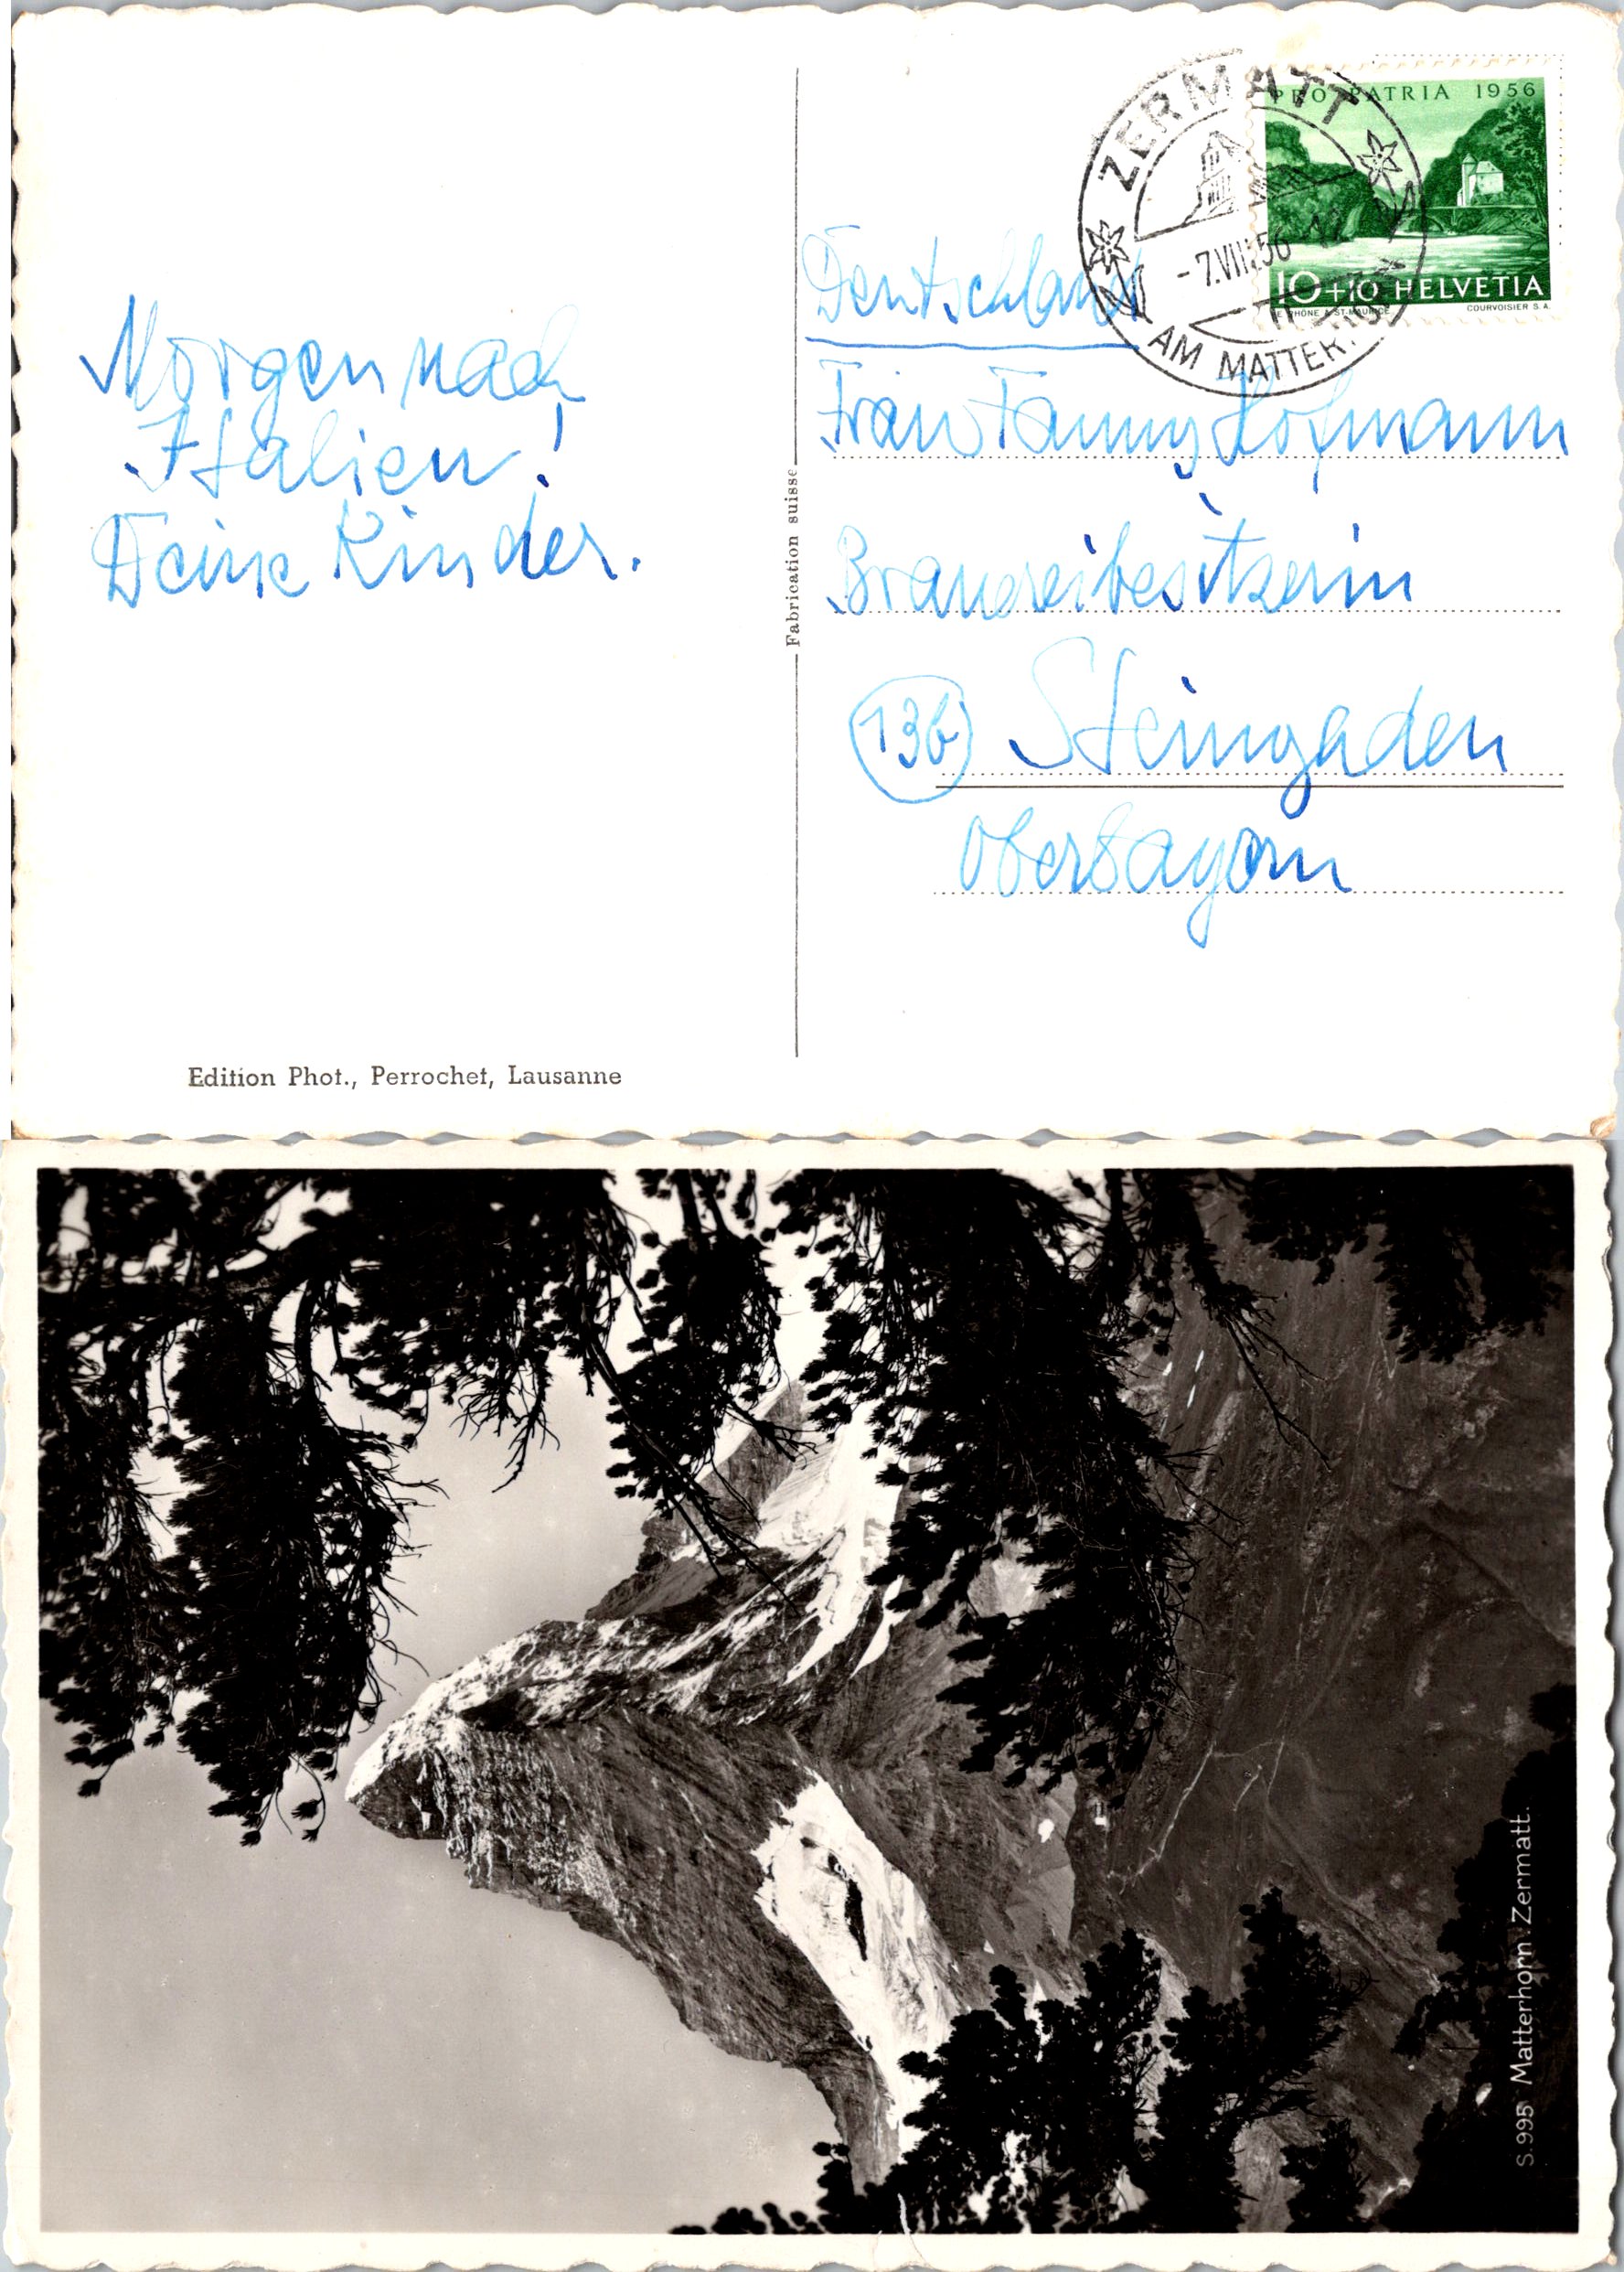 Morgen nach
Italien!
Deine Kinder.
Edition Phot., Perrochet, Lausanne
Fabrication suisse
ZERMATT
-7.VIII.56
AM MATTERHORN
PRO PATRIA 1956
10+10 HELVETIA
COURVOISIER S.A.
Deutschland
Frau Fanny Hofmann
Brauereibesitzerin
13b Steingaden
Oberbayern
S.995 Matterhorn. Zermatt.